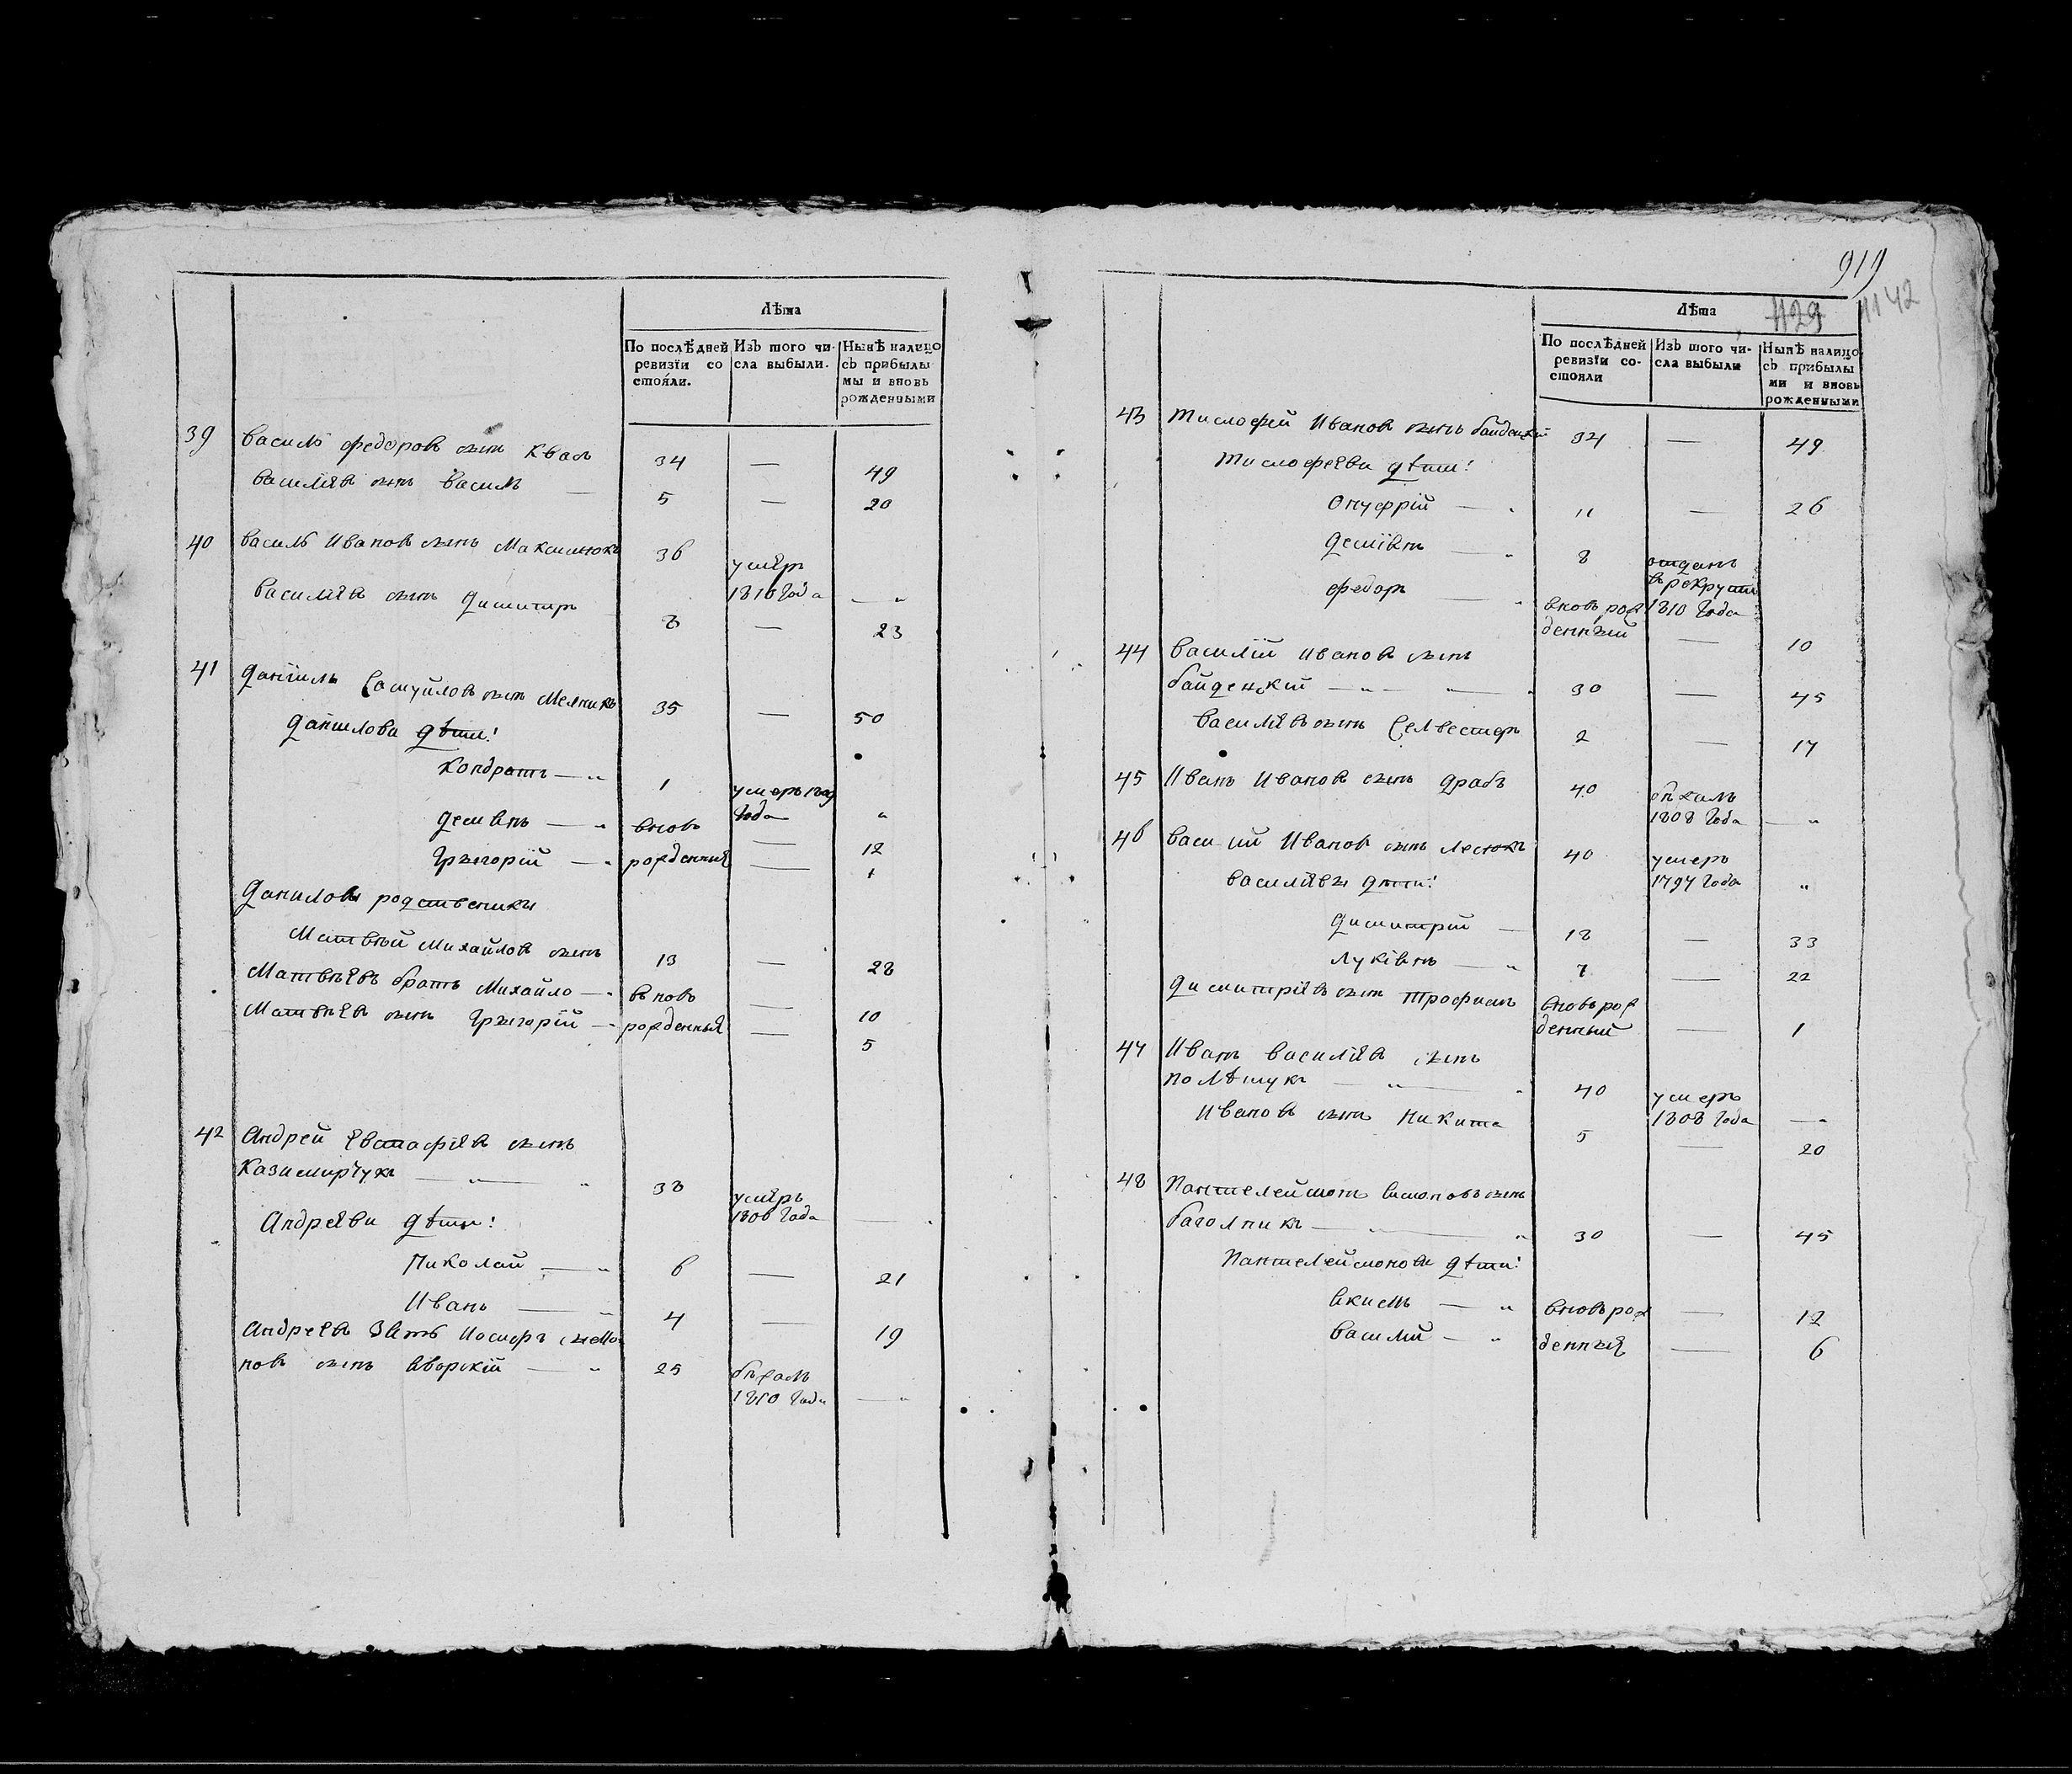 Лѣта
По послѣдней ревизїи со
стояли.
Изъ того чи-
сла выбыли.
Нынѣ налицо
съ прибылы
мы и вновь
рожденными
39 Василь Федоровъ сынъ Кваль 34 — 49
Василіевъ сынъ Василь — 5 — 20
40 Василь Ивановъ сынъ Максимюкъ 36 умеръ
1816 Года — „
Василіевъ сынъ Димитръ 8 — 23
41 Даніилъ Самуйловъ сынъ Мелникъ 35 — 50
Даниловы дѣти:
Кондратъ — „ 1 умеръ
Года „
Демянъ — „ вновь — 12
Григорій — „ рожденныя — 1
Даниловы родственики
Матвѣй Михайловъ сынъ 13 — 28
Матвѣевъ братъ Михайло — „ вновь — 10
Матвѣевъ сынъ Григорій — рожденныя — 5
42 Андрей Евстафіевъ сынъ
Казимирчукъ — „ — „ 38 умеръ
1806 Года — „
Андреевы дѣти:
Николай — „ 6 — 21
Иванъ — „ 4 — 19
Андреевъ зять Иосифъ
новъ сынъ Яворскій — „ 25 бѣжалъ
1810 Года — „
919
1129 1142
Лѣта
По послѣдней
ревизїи со-
стояли
Изъ того чи-
сла выбыли
Нынѣ налицо
съ прибылы
ми и вновь
рожденными
43 Тимофей Ивановъ сынъ Байденкій 34 — 49
Тимофееви дѣти:
Онуфрій — „ 11 — 26
Демянъ — „ 8 отданъ
въ рекруты
1810 Года
Федоръ — „ вновь рож
денный — 10
44 Василій Ивановъ сынъ
Байденкій — „ — „ — „ 30 — 45
Василіевъ сынъ Селвестеръ 2 — 17
45 Иванъ Ивановъ сынъ Драбъ 40 бѣжалъ
1808 Года — „
46 Василий Ивановъ сынъ Лесюкъ 40 умеръ
1797 Года „
Василіевы дѣти:
Димитрій — 18 — 33
Лукіянъ — „ 7 — 22
Димитріевъ сынъ Трофимъ вновь рож
денный — 1
47 Иванъ Василіевъ сынъ
Полѣщукъ — „ — „ 40 умеръ
1808 Года — „
Ивановъ сынъ Никита 5 — 20
48 Пантелеймонъ Симоновъ сынъ
Баголникъ — „ — „ 30 — 45
Пантелеймонови дѣти:
Якимъ — „ вновь рож — 12
Василій — „ денныя — 6